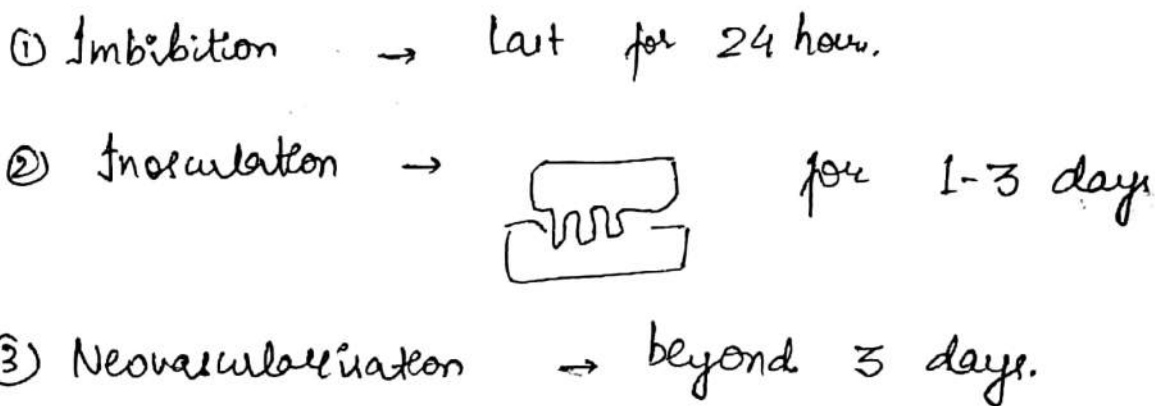 ① Imbibition → Last for 24 hour.
② Inosculation → for 1-3 days
③ Neovascularisation → beyond 3 days.